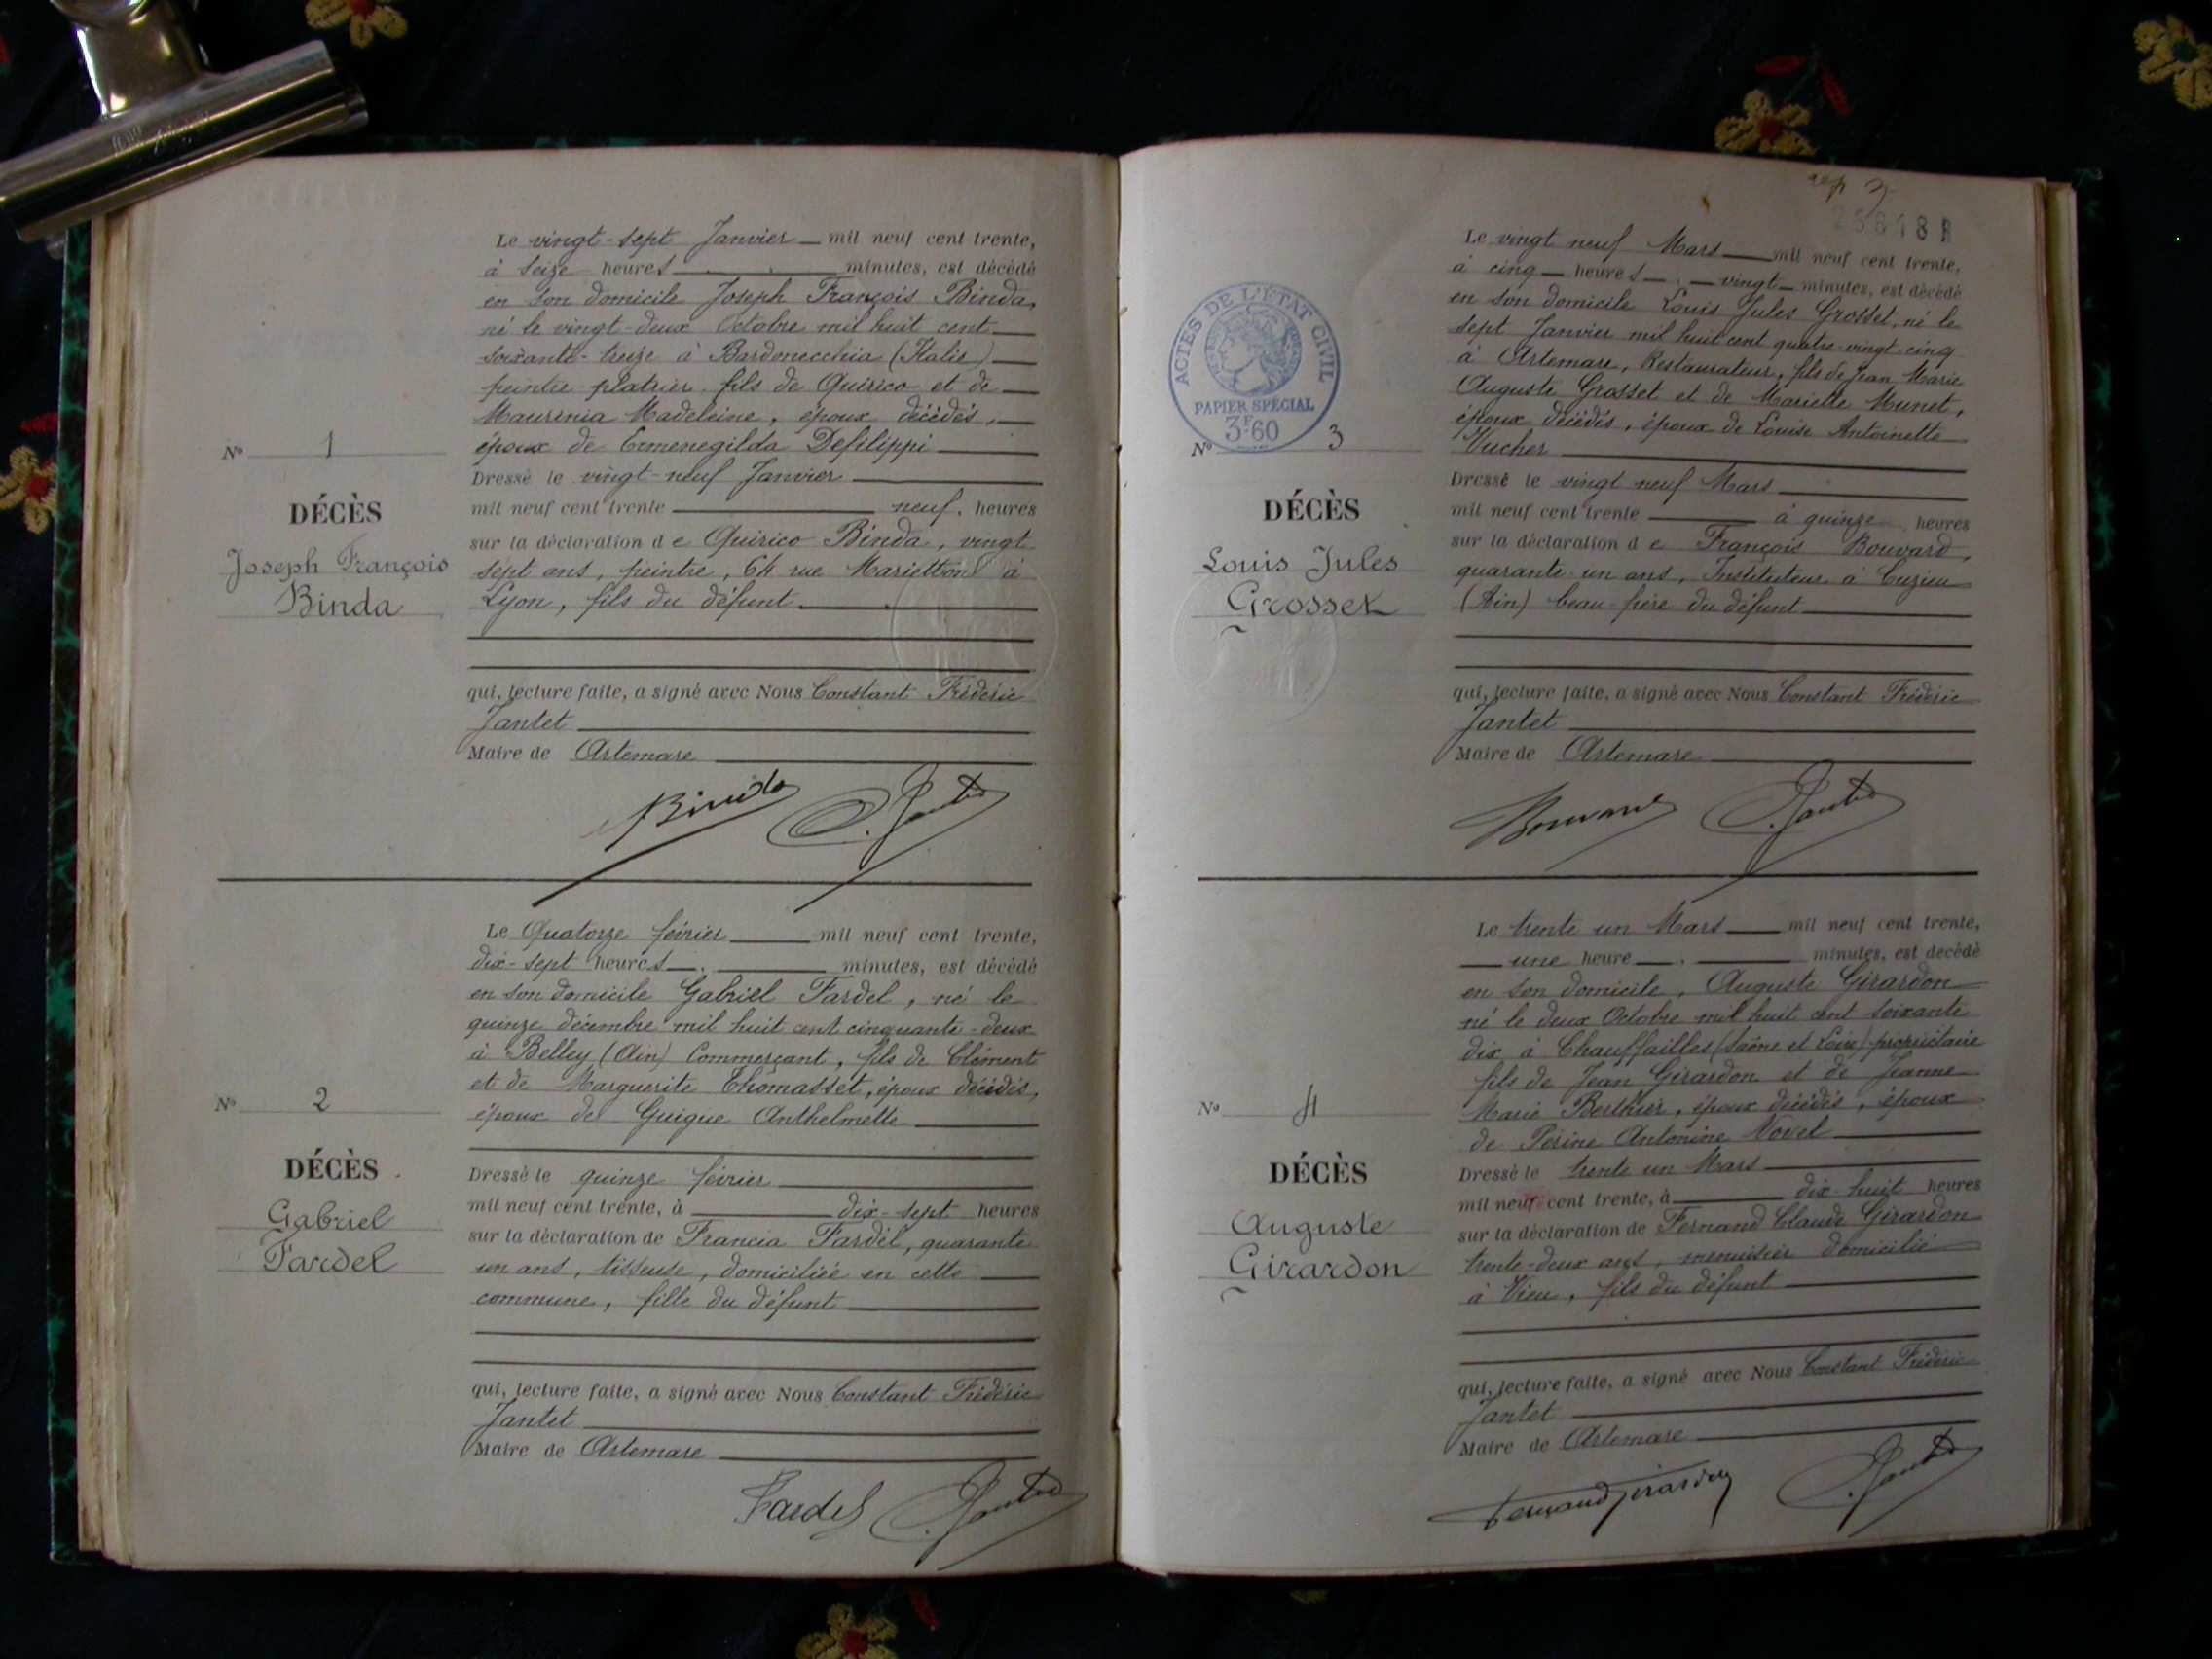 Le vingt-sept Janvier mil neuf cent trente,
à seize heures minutes, est décédé
en son domicile Joseph François Binda,
né le vingt-deux Octobre mil huit cent
soixante-treize à Bardonecchia (Italie)
peintre-platrier fils de Quirico et de
Maurinia Madeleine, époux décédés,
époux de Ermenegilda Defilippi
Nº 1
Dressé le vingt-neuf Janvier
mil neuf cent trente neuf, heures
DÉCÈS
sur la déclaration de Quirico Binda, vingt
Joseph François
sept ans, peintre, 64 rue Marietton à
Binda
Lyon, fils du défunt
qui, lecture faite, a signé avec Nous Constant Frédéric
Jantet
Maire de Artemare
Binda
Jantet
Le Quatorze février mil neuf cent trente,
dix-sept heures minutes, est décédé
en son domicile Gabriel Fardel, né le
quinze décembre mil huit cent cinquante-deux
à Belley (Ain) Commerçant, fils de Clément
et de Marguerite Thomasset, époux décédés,
Nº 2
époux de Guigue Anthelmette
DÉCÈS
Dressé le quinze février
Gabriel
mil neuf cent trente, à dix-sept heures
Fardel
sur la déclaration de Francia Fardel, quarante
un ans, tisseuse, domiciliée en cette
commune, fille du défunt
qui, lecture faite, a signé avec Nous Constant Frédéric
Jantet
Maire de Artemare
Fardel
Jantet
rep 3
25618 R
ACTES DE L'ÉTAT CIVIL
PAPIER SPÉCIAL
3F60
Le vingt neuf Mars mil neuf cent trente,
à cinq heures vingt minutes, est décédé
en son domicile Louis Jules Grosset, né le
sept Janvier mil huit cent quatre-vingt-cinq
à Artemare, Restaurateur, fils de Jean Marie
Auguste Grosset et de Mariette Munet,
époux décédés, époux de Louise Antoinette
Nº 3
Vucher
DÉCÈS
Dressé le vingt neuf Mars
mil neuf cent trente à quinze heures
sur la déclaration de François Bouvard,
Louis Jules
quarante-un ans, Instituteur à Cuzieu
Grosset
(Ain) beau-frère du défunt
qui, lecture faite, a signé avec Nous Constant Frédéric
Jantet
Maire de Artemare
Bouvard
Jantet
Le trente un Mars mil neuf cent trente,
une heure minutes, est décédé
en son domicile, Auguste Girardon
né le deux Octobre mil huit cent soixante
dix à Chauffailles (Saône et Loire) propriétaire
fils de Jean Girardon et de Jeanne
Nº 4
Marie Berthier, époux décédés, époux
de Périne Antonine Novel
DÉCÈS
Dressé le trente un Mars
mil neuf cent trente, à dix-huit heures
Auguste
sur la déclaration de Fernand Claude Girardon
Girardon
trente-deux ans, menuisier domicilié
à Vieu, fils du défunt
qui, lecture faite, a signé avec Nous Constant Frédéric
Jantet
Maire de Artemare
Fernand Girardon
Jantet